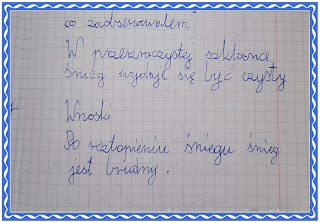 co zaobserwowałem"
W przezroczystej szklance
śnieg wydaje się być czysty
Wnioski:
Po roztopieniu śniegu śnieg
jest brudny.